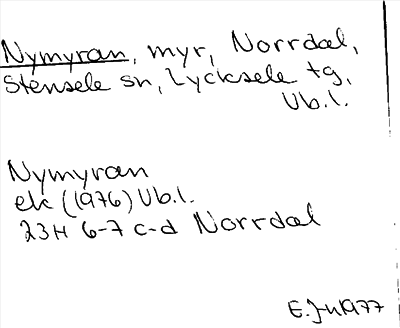 Nymyran, myr, Norrdal,
Stensele sn, Lycksele tg,
Vb.l.
Nymyran
ek (1976) Vb.l.
23H 6-7 c-d Norrdal
E.J-n 1977